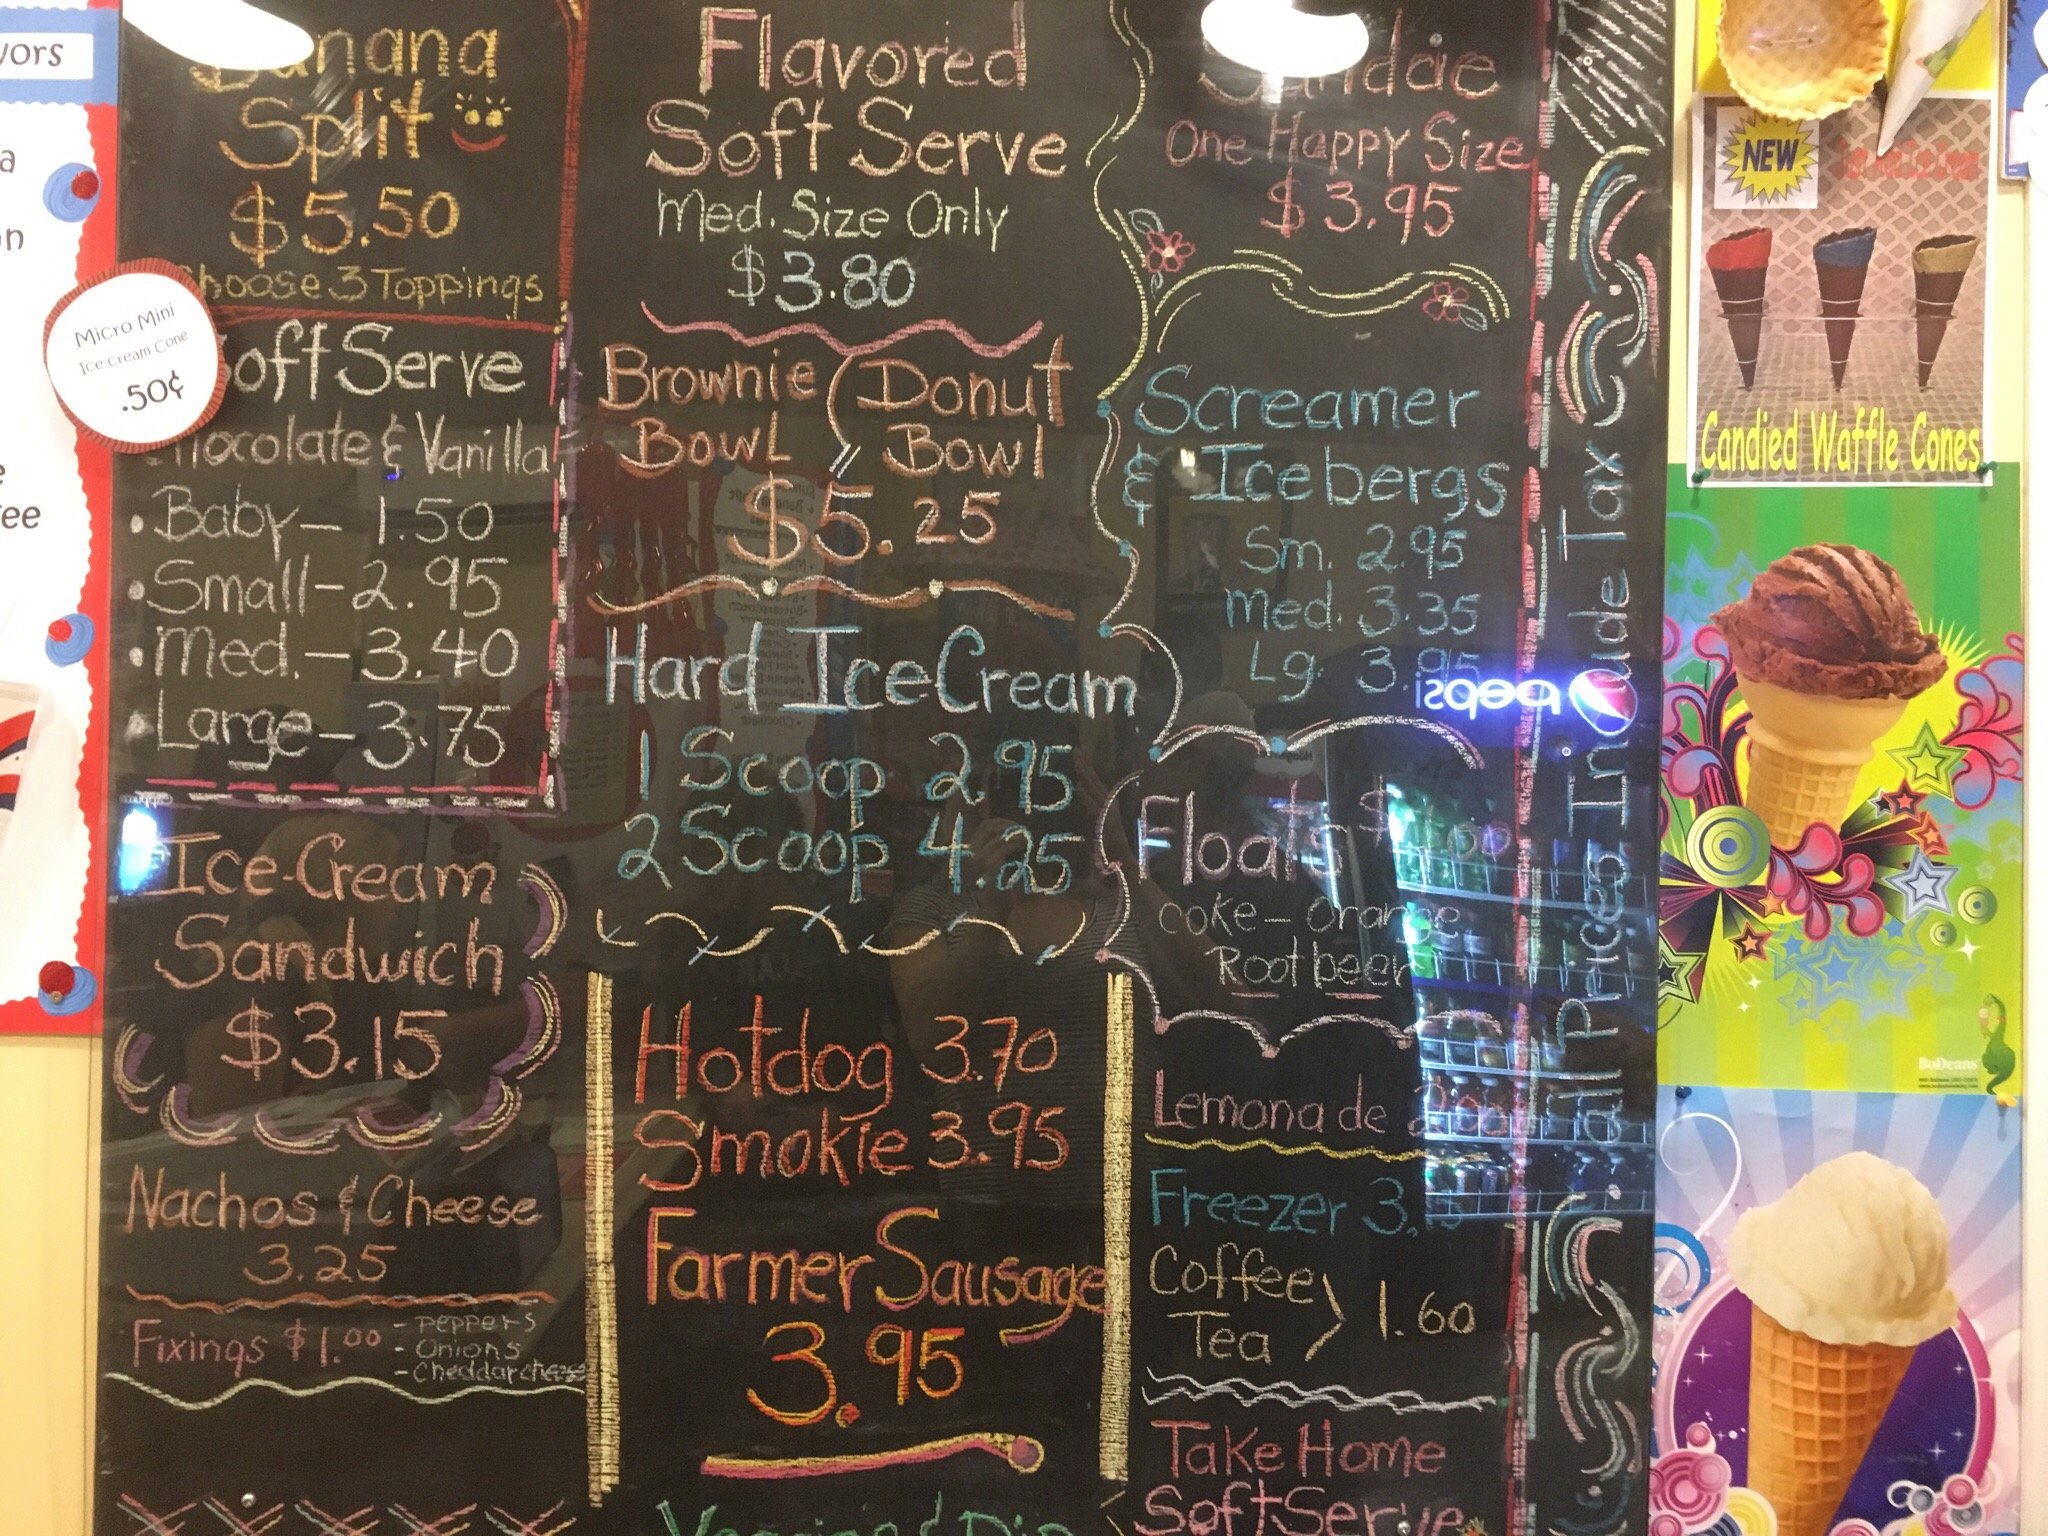 Banana
Split
$5.50
Choose 3 Toppings
Micro Mini
Ice-Cream Cone
.50¢
Soft Serve
Chocolate & Vanilla
• Baby – 1.50
• Small – 2.95
• Med. – 3.40
• Large – 3.75
Ice-Cream
Sandwich
$3.15
Nachos & Cheese
3.25
Fixings $1.00
- Peppers
- Onions
- Cheddar cheese
Flavored
Soft Serve
Med. Size Only
$3.80
Brownie
Bowl
Donut
Bowl
$5.25
Hard Ice Cream
1 Scoop 2.95
2 Scoop 4.25
Hotdog 3.70
Smokie 3.95
Farmer Sausage
3.95
Sundae
One Happy Size
$3.95
Screamer
& Icebergs
Sm. 2.95
Med. 3.35
Lg. 3.95
pepsi
Floats
Coke – Orange
Root beer
Lemonade
Freezer
Coffee
Tea
1.60
Take Home
Soft Serve
All Prices Include Tax
NEW
Candied Waffle Cones
BoDeans